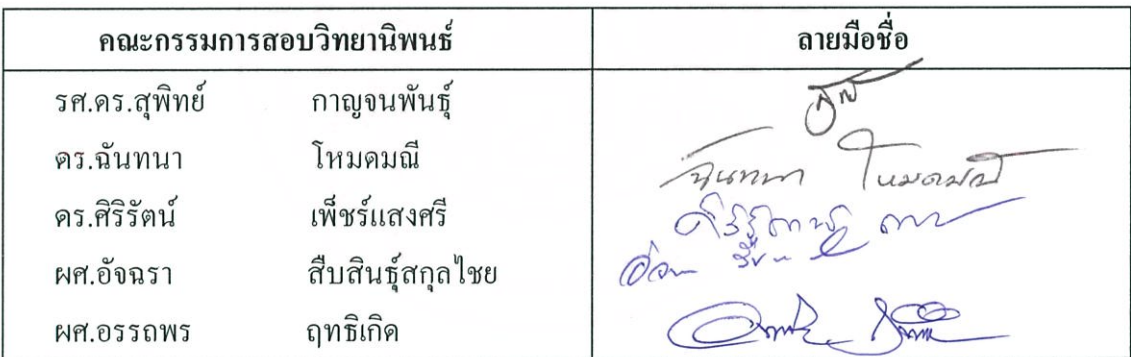 คณะกรรมการสอบวิทยานิพนธ์ ลายมือชื่อ
รศ.ดร.สุพิทย์ กาญจนพันธุ์
ดร.ฉันทนา โหมดมณี ฉันทนา โหมดมณี
ดร.ศิริรัตน์ เพ็ชร์แสงศรี
ผศ.อัจฉรา สืบสินธุ์สกุลไชย
ผศ.อรรถพร ฤทธิเกิด